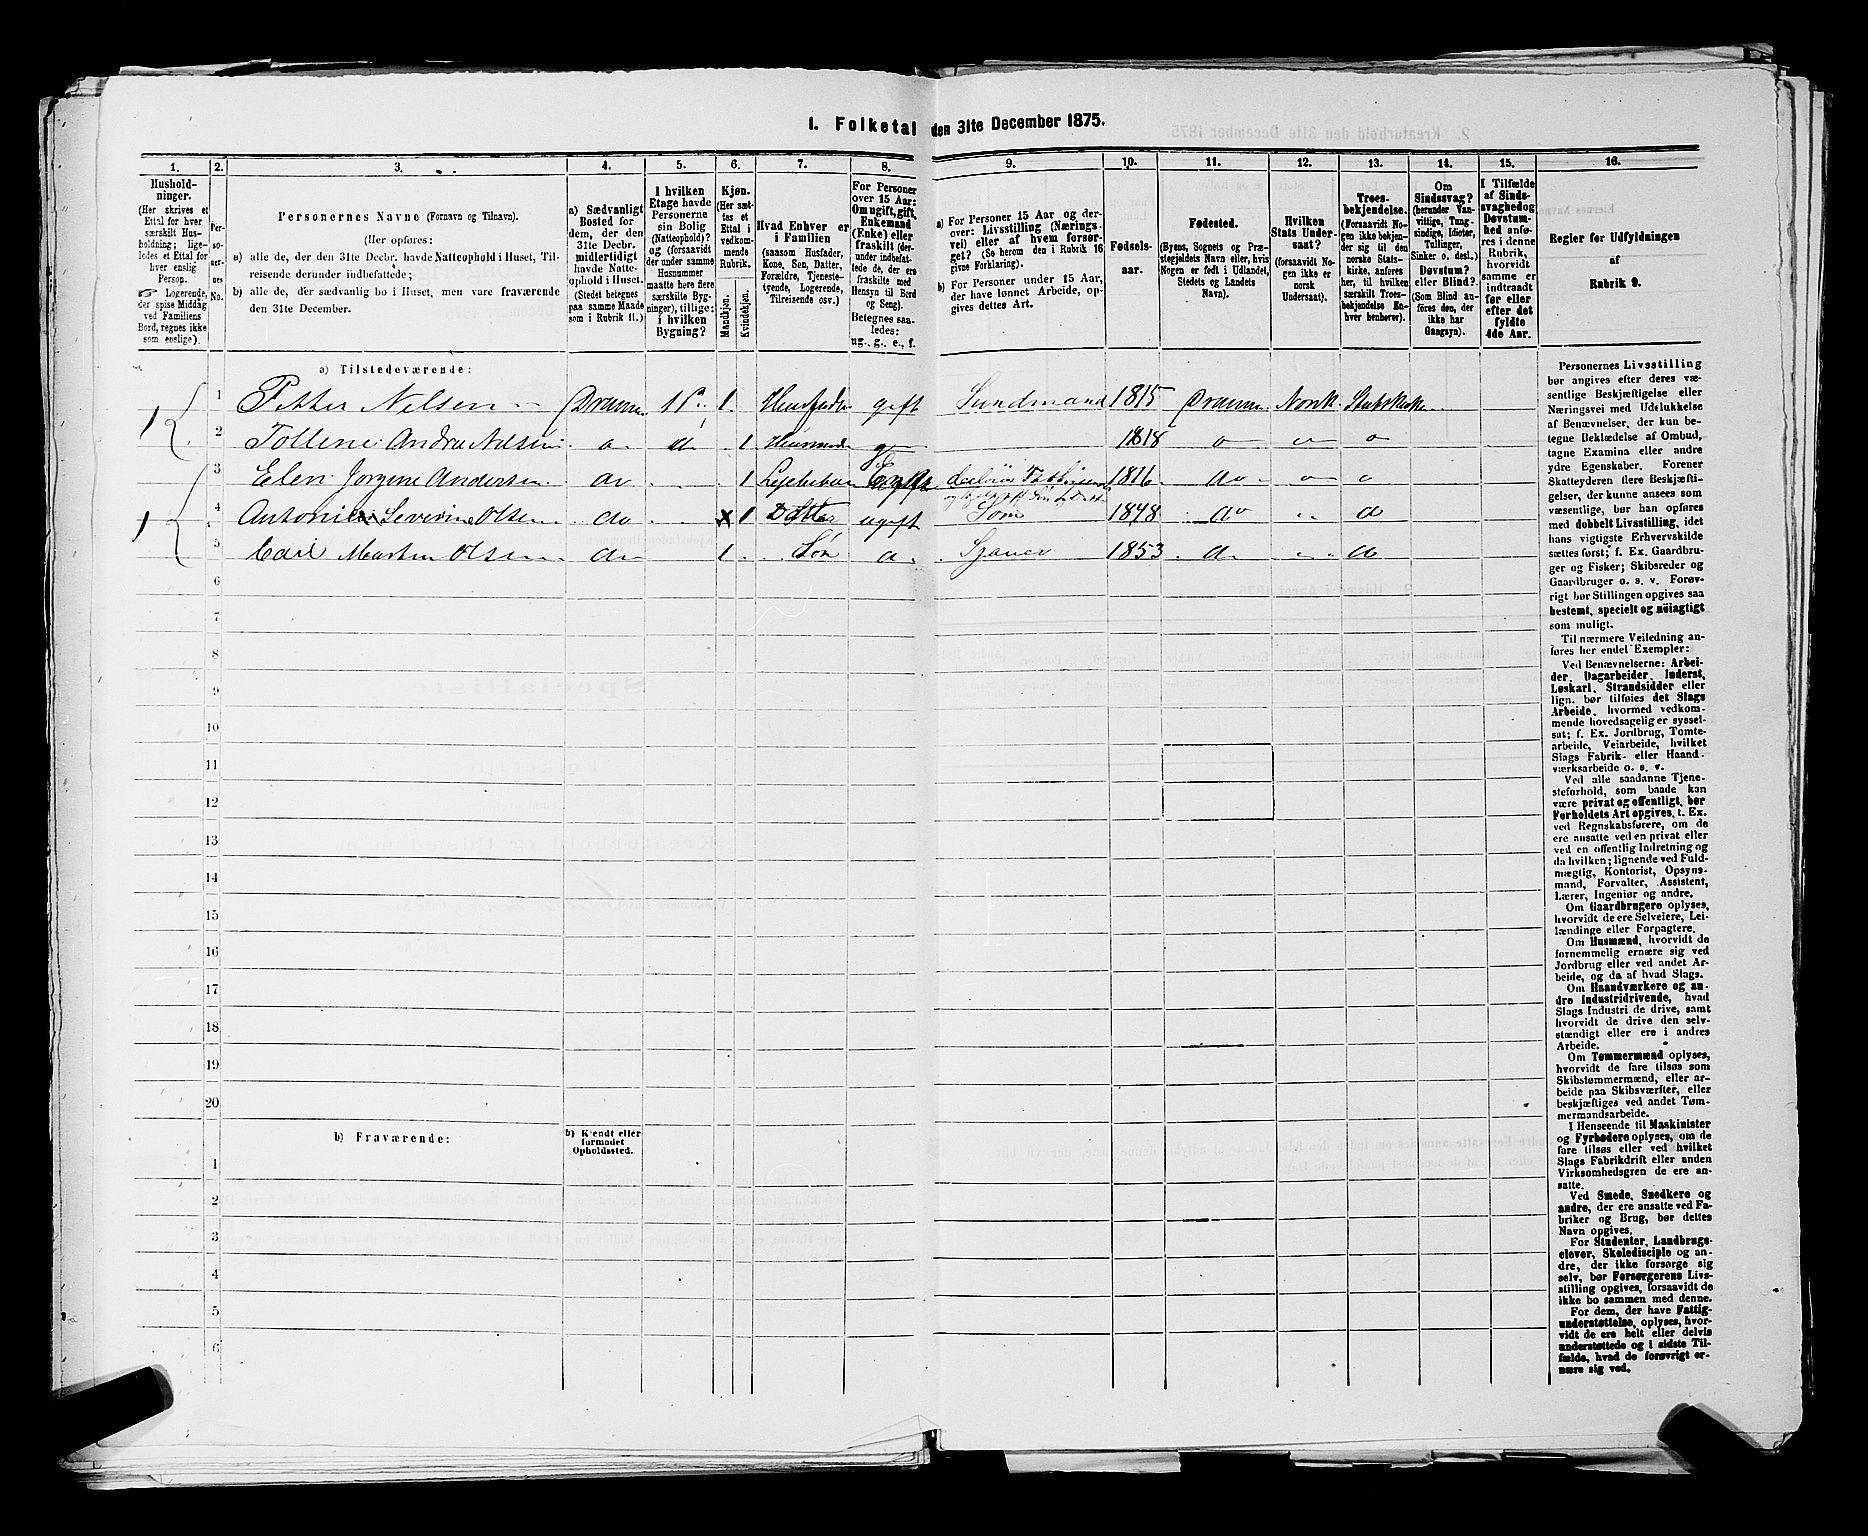 1. Folketal den 31te December 1875.
1. 2. 3. 4. 5. 6. 7. 8. 9. 10. 11. 12. 13. 14. 15. 16.
Hushold-
ninger.
(Her skrives et
Ettal for hver
særskilt Hus-
holdning; lige-
ledes et Ettal for
hver enslig
Person.
Logerende,
der spise Middag
ved Familiens
Bord, regnes ikke
som enslige).
Per-
so-
ner-
nes
No.
Personernes Navne (Fornavn og Tilnavn).
(Her opføres:
a) alle de, der den 31te Decbr. havde Natteophold i Huset, Til-
reisende derunder indbefattede;
b) alle de, der sædvanlig bo i Huset, men vare fraværende
den 31te December.
a) Sædvanligt
Bosted for
dem, der den
31te Decbr.
midlertidigt
havde Natte-
ophold i Huset.
(Stedet betegnes
paa samme Maade
som i Rubrik 11.)
I hvilken
Etage havde
Personerne
sin Bolig
(Natteophold)?
og (forsaavidt
der under samme
Husnummer
maatte høre flere
særskilte Byg-
ninger), tillige:
i hvilken
Bygning?
Kjøn.
(Her sæt-
tes et
Ettal i
vedkom-
mende
Rubrik.
Mandkjøn.
Kvindekjøn.
Hvad Enhver er
i Familien
(saasom Husfader,
Kone, Søn, Datter,
Forældre, Tjeneste-
tyende, Logerende,
Tilreisende osv.)
For Personer
over 15 Aar:
Om ugift, gift,
Enkemand
(Enke) eller
fraskilt (der-
under indbefat-
tede de, der ere
fraskilte med
Hensyn til Bord
og Seng).
Betegnes saa-
ledes:
ug., g., e., f.
a) For Personer 15 Aar og der-
over: Livsstilling (Nærings-
vei) eller af hvem forsør-
get? (Se herom den i Rubrik 16
givne Forklaring).
b) For Personer under 15 Aar,
der have lønnet Arbeide, op-
gives dettes Art.
Fødsels-
aar.
Fødested.
(Byens, Sognets og Præ-
stegjeldets Navn eller, hvis
Nogen er født i Udlandet,
Stedets og Landets
Navn).
Hvilken
Stats Under-
saat?
(forsaavidt No-
gen ikke er
norsk
Undersaat).
Troes-
bekjendelse.
(Forsaavidt No-
gen ikke bekjen-
der sig til den
norske Stats-
kirke, anføres
her, til hvilken
særskilt Troes-
bekjendelse En-
hver henhører).
Om
Sindssvag?
(herunder Van-
vittige, Tung-
sindige, Idioter,
Tullinger,
Sinker o. desl.)
Døvstum?
eller Blind?
(Som Blind an-
føres den, der
ikke har
Gangsyn).
I Tilfælde
af Sinds-
svaghed og
Døvstum-
hed anfø-
res i denne
Rubrik,
hvorvidt
samme er
indtraadt
før eller
efter det
fyldte
4de Aar.
Regler for Udfyldningen
af
Rubrik 9.
a) Tilstedeværende:
1 1 Petter Nilsen Dramm 1 Husfader gift 1815 Dramm Norsk Statskirke
2 Nilsen do 1 Husmoder g 1818
3 Elen Jorgine Andersen do 1 Enke 1816 do
1 4 Severine Olsen do x 1 Datter ugift Søm 1848 do do
5 Carl Martin Olsen do 1 Søn Sjouer 1853 do do
6
7
8
9
10
11
12
13
14
15
16
17
18
19
20
b) Fraværende:
b) Kjendt eller
formodet
Opholdssted.
1
2
3
4
5
6
Personernes Livsstilling
bør angives efter deres væ-
sentlige Beskjæftigelse eller
Næringsvei med Udelukkelse
af Benævnelser, der kun be-
tegne Beklædelse af Ombud,
tagne Examina eller andre
ydre Egenskaber. Forener
Skatteyderen flere Beskjæfti-
gelser, der kunne ansees som
væsentlige, bør han opføres
med dobbelt Livsstilling, idet
hans vigtigste Erhvervskilde
sættes først; f. Ex. Gaardbru-
ger og Fisker; Skibsreder og
Gaardbruger o. s. v. Forøv-
rigt bør Stillingen opgives saa
bestemt, specielt og nøiagtigt
som muligt.
Til nærmere Veiledning an-
føres her endel Exempler:
Ved Benævnelserne: Arbei-
der, Dagarbeider, Inderst,
Løskarl, Strandsidder eller
lign. bør tilføies det Slags
Arbeide, hvormed vedkom-
mende hovedsagelig er syssel-
sat; f. Ex. Jordbrug, Tomte-
arbeide, Veiarbeide, hvilket
Slags Fabrik- eller Haand-
værksarbeide o. s. v.
Ved alle saadanne Tjene-
steforhold, som baade kan
være privat og offentligt, bør
Forholdets Art opgives, t. Ex.
ved Regnskabsførere, om de
ere ansatte ved en privat eller
ved en offentlig Indretning og
da hvilken; lignende ved Fuld-
mægtig, Kontorist, Opsyns-
mand, Forvalter, Assistent,
Lærer, Ingeniør og andre.
Om Gaardbrugere oplyses,
hvorvidt de ere Selveiere, Lei-
lændinge eller Forpagtere.
Om Husmænd, hvorvidt de
fornemmelig ernære sig ved
Jordbrug eller ved andet Ar-
beide, og da af hvad Slags.
Om Haandværkere og an-
dre Industridrivende, hvad
Slags Industri de drive, samt
hvorvidt de drive den selv-
stændigt eller ere i andres
Arbeide.
Om Tømmermænd oplyses,
hvorvidt de fare tilsøs som
Skibstømmermænd, eller ar-
beide paa Skibsværfter, eller
beskjæftiges ved andet Tøm-
mermandsarbeide.
I Henseende til Maskinister
og Fyrbødere oplyses, om de
fare tilsøs eller ved hvilket
Slags Fabrikdrift eller anden
Virksomhedsgren de ere an-
satte.
Ved Smede, Snedkere og
andre, der ere ansatte ved Fa-
briker og Brug, bør dettes
Navn opgives.
For Studenter, Landbrugs-
elever, Skoledisciple og an-
dre, der ikke forsørge sig
selv, bør Forsørgerens Livs-
stilling opgives, forsaavidt de
ikke bo sammen med denne.
For dem, der have Fattig-
understøttelse, oplyses, hvor-
vidt de ere helt eller delvis
understøttede og i sidste Til-
fælde, hvad de forøvrigt er-
nære sig ved.